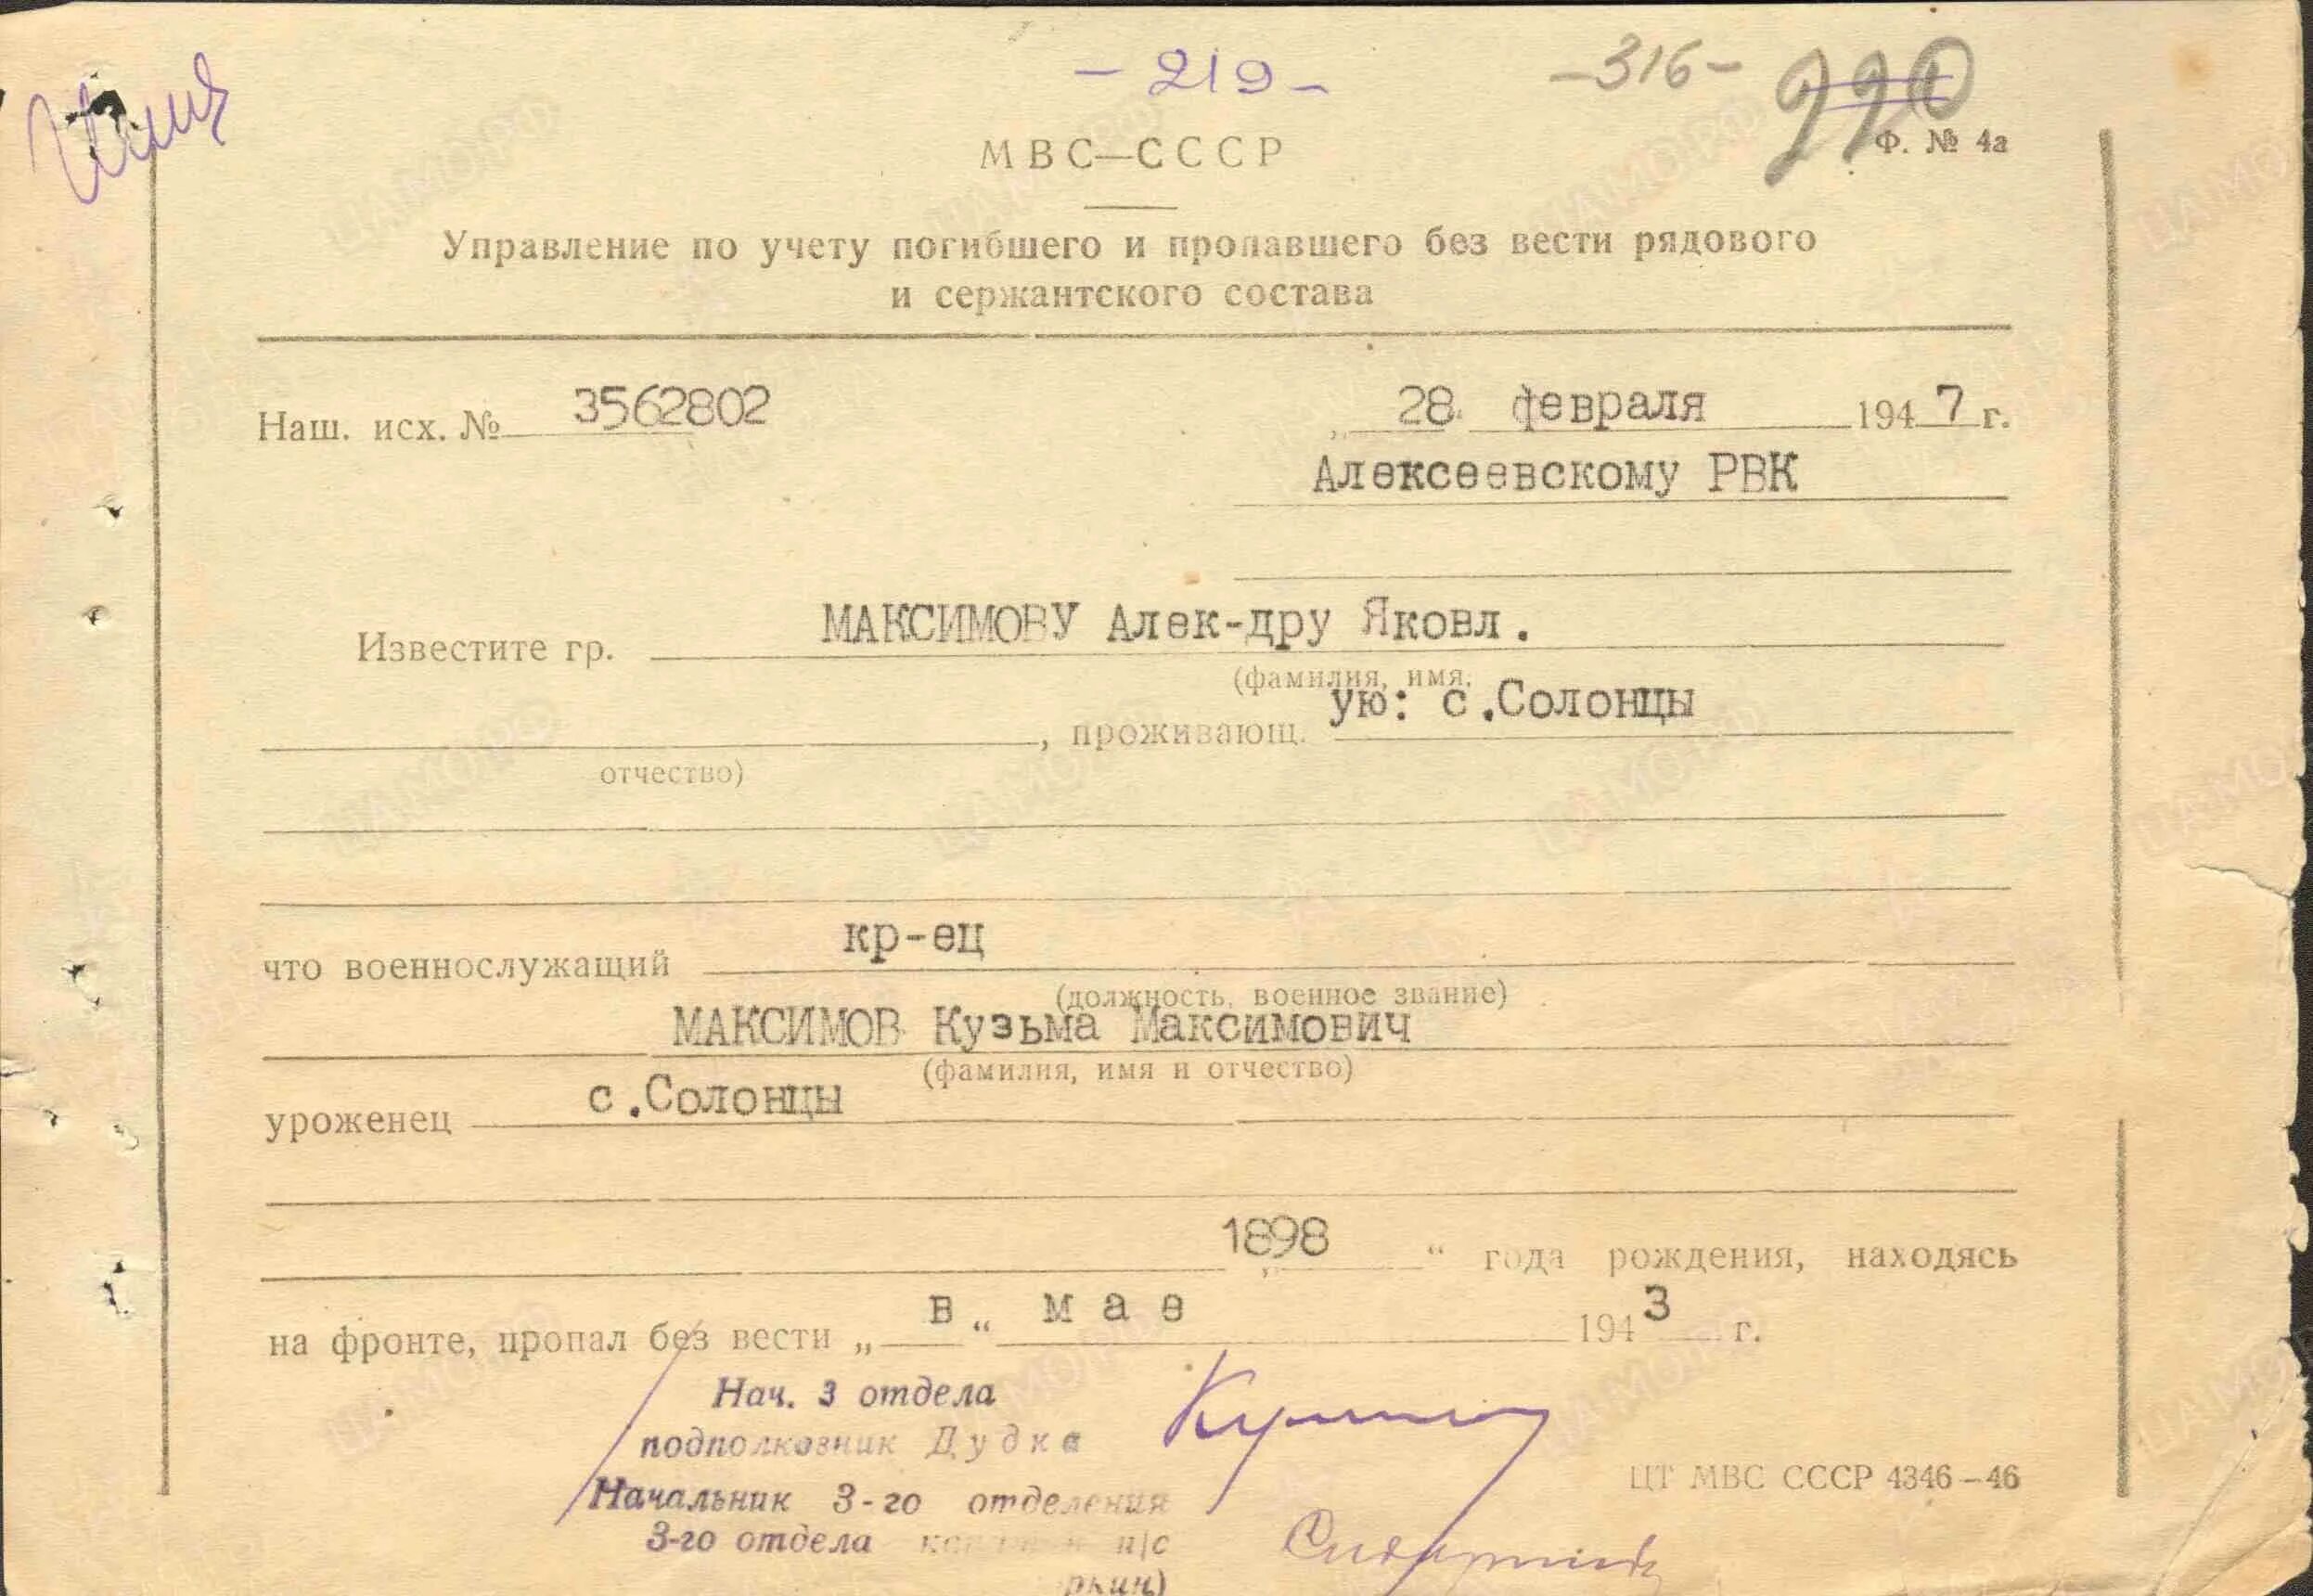 - 219 -
- 316 -
220
МВС—СССР
Ф. № 4а
Управление по учету погибшего и пропавшего без вести рядового
и сержантского состава
Наш. исх. № 3562802
„ 28 февраля 1947 г.
Алексеевскому РВК
Известите гр. МАКСИМОВУ Алек-дру Яковл.
(фамилия, имя,
, проживающ. ую: с.Солонцы
отчество)
что военнослужащий кр-ец
(должность, военное звание)
МАКСИМОВ Кузьма Максимович
(фамилия, имя и отчество)
уроженец с.Солонцы
„ 1898 “ года рождения, находясь
на фронте, пропал без вести „ в “ мае 1943 г.
Нач. 3 отдела
подполковник Дудка
Начальник 3-го отделения
ЦТ МВС СССР 4346-46
3-го отдела н/с
ркин)
ЦАМО.РФ